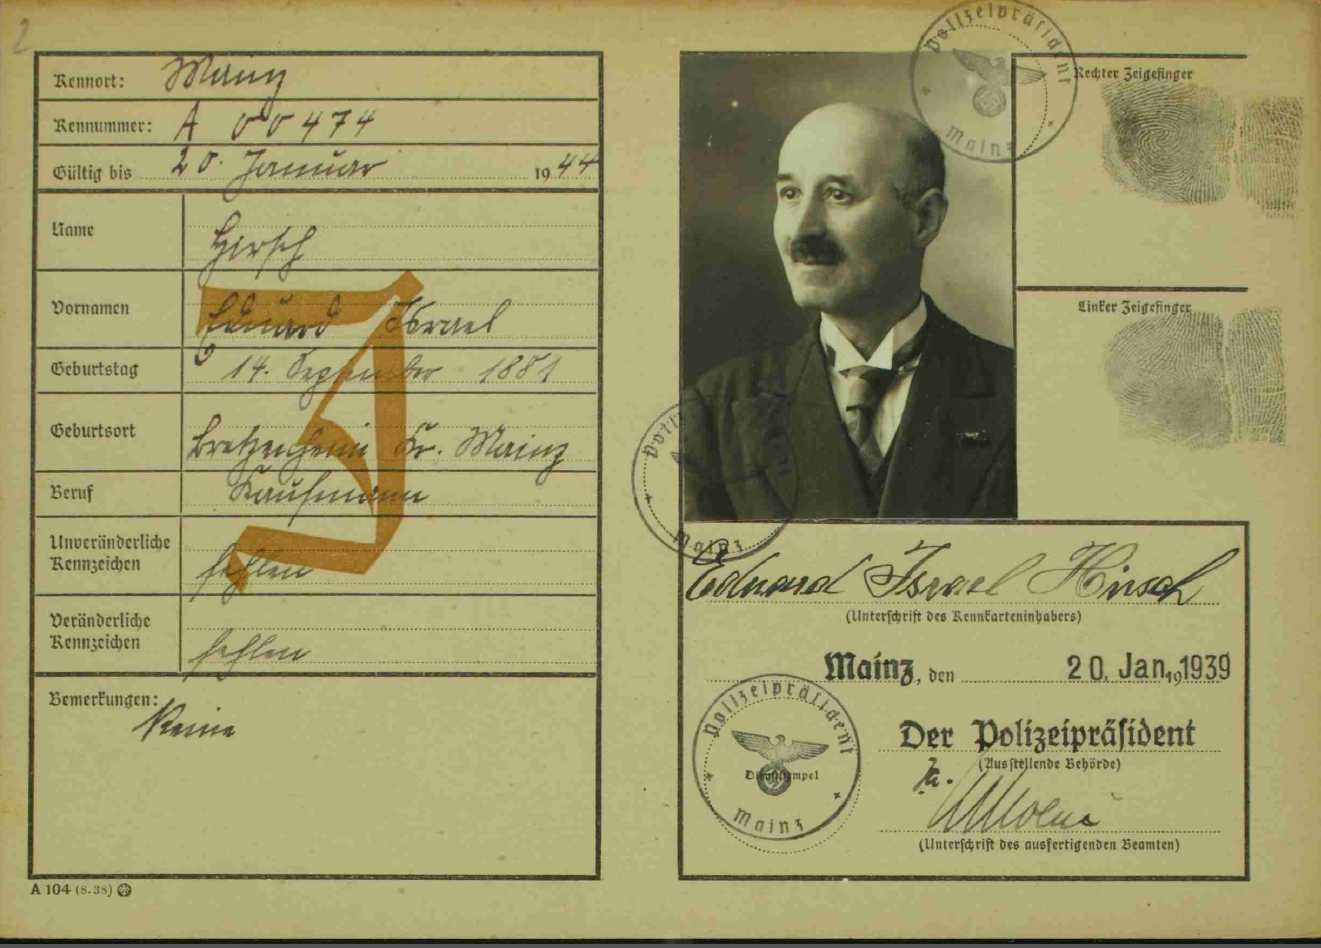 2
Kennort: Mainz
Kennummer: A 00474
Gültig bis 20. Januar 1944
Name Hirsch
Vornamen Eduard Israel
Geburtstag 14. September 1881
Geburtsort Bretzenheim Kr. Mainz
Beruf Kaufmann
Unveränderliche
Kennzeichen fehlen
Veränderliche
Kennzeichen fehlen
Bemerkungen:
Keine
J
A 104 (8.38)
Polizeipräsident
Mainz
Rechter Zeigefinger
Linker Zeigefinger
Mainz
Eduard Israel Hirsch
(Unterschrift des Kennkarteninhabers)
Mainz, den 20. Jan. 19 1939
Polizeipräsident
Dienststempel
Mainz
Der Polizeipräsident
(Ausstellende Behörde)
(Unterschrift des ausfertigenden Beamten)